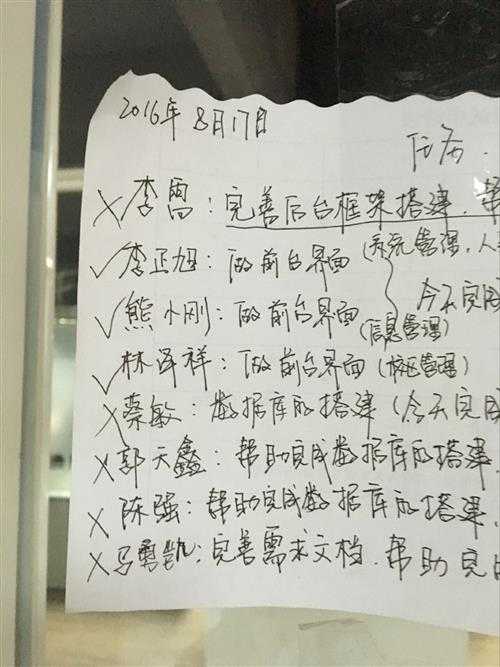 2016年8月17日
任务
×李雷：完善后台框架搭建，帮
✓李正旭：做前台界面（系统管理，人
今天完成
✓熊小刚：做前台界面（信息管理）
✓林泽祥：做前台界面（校区管理）
×蔡敏：数据库的搭建（今天完成
×郭天鑫：帮助完成数据库的搭建
×陈强：帮助完成数据库的搭建
×马勇凯：完善需求文档，帮助完成